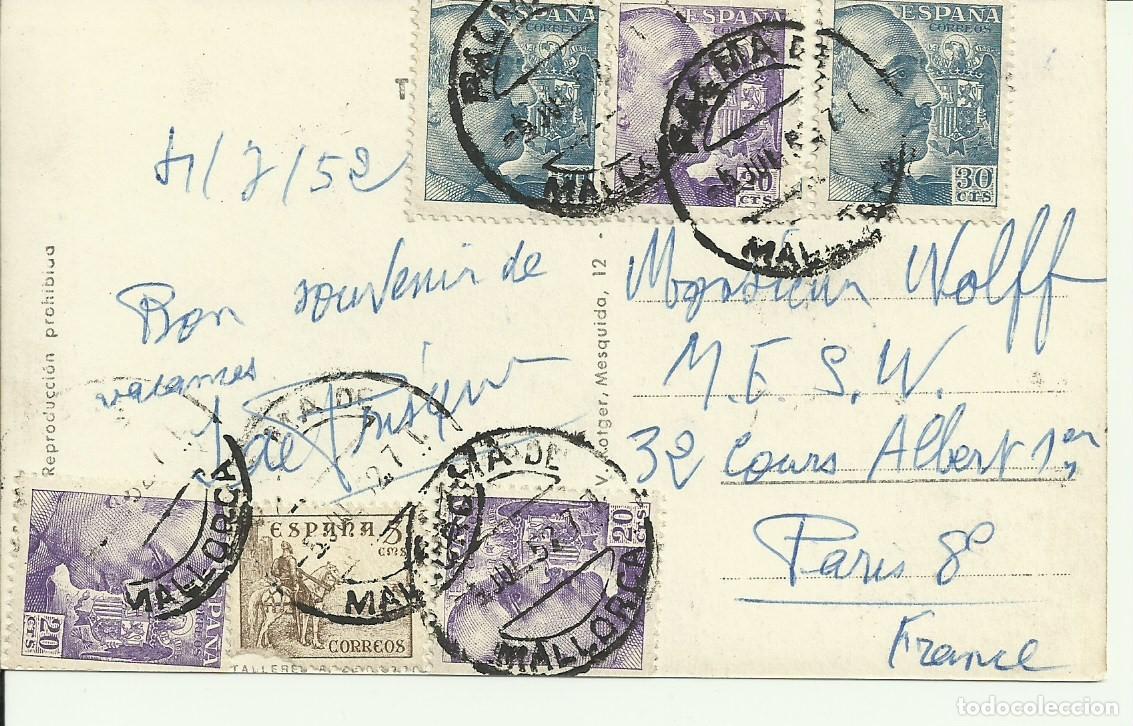 ESPAÑA
CORREOS
ESPAÑA
CORREOS
20
CTS
ESPAÑA
CORREOS
30
CTS
PALMA DE
MALLORCA
5 JUL 52
MALLORCA
T
4/7/52
Bon souvenir de
vacances
Reproducción prohibida
Mesquida, 12 -
Monsieur Wolff
M. E. S. W.
32 Cours Albert 1er
Paris 8e
France
MA DE
MALLORCA
20
CTS
ESPAÑA
ESPAÑA 5
CMS
CORREOS
MA DE
JUL 52 7
MALLORCA
20
CTS
ESPAÑA
todocoleccion.net